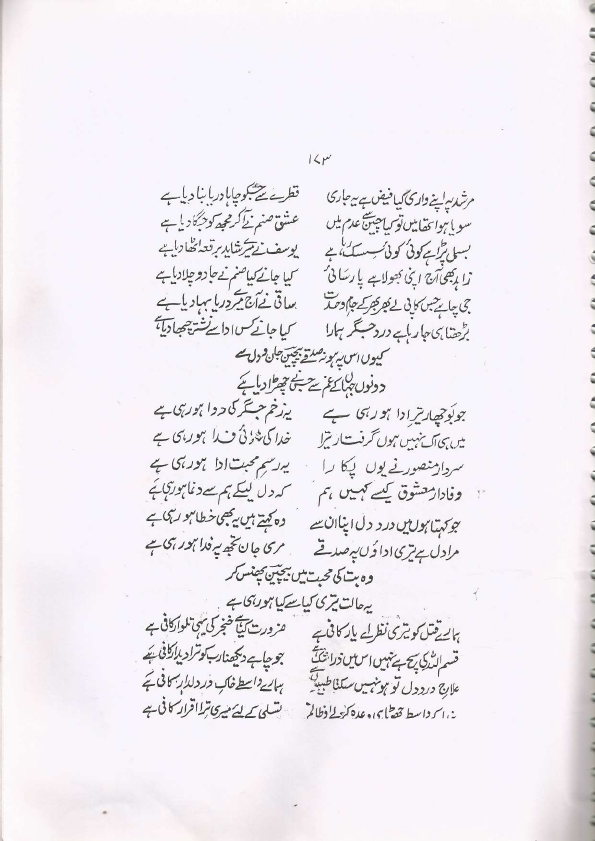 ۱۷۳
مرشد پہ اپنے واری گیا فیض ہے یہ جاری قطرے سے جسکو چاہا دریا بنا دیا ہے
سویا ہوا تھا میں تو کیا چین سے عدم میں عشق صنم نے آکر مجھ کو جگا دیا ہے
بسمل پڑا ہے کوئی کوئی سسک رہا ہے یوسف نے میرے شاید برقعہ اٹھا دیا ہے
زاہد بھی آج اپنی بھولا ہے پارسائی کیا جانے کیا صنم نے جادو چلا دیا ہے
جی چاہے جس کا پی لے بھر بھر کے جام وحدت ساقی نے آج میرے دریا بہا دیا ہے
بڑھتا ہی جا رہا ہے درد جگر ہمارا کیا جانے کس ادا سے نشتر چبھا دیا ہے
کیوں اس پہ ہو نہ صدقے بیچین جان و دل سے
دونوں جہاں کے غم سے جسنے چھڑا دیا ہے
جو بوچھار تیر ادا ہو رہی ہے یہ زخم جگر کی دوا ہو رہی ہے
میں ہی اک نہیں ہوں گرفتار تیرا خدا کی خدائی فدا ہو رہی ہے
سر دار منصور نے یوں پکارا یہ رسم محبت ادا ہو رہی ہے
وفادار معشوق کیسے کہیں ہم کہ دل لیکے ہم سے دغا ہو رہی ہے
جو کہتا ہوں میں درد دل اپنا ان سے وہ کہتے ہیں یہ بھی خطا ہو رہی ہے
مرا دل ہے تیری اداؤں پہ صدقے مری جان تجھ پہ فدا ہو رہی ہے
وہ بت کی محبت میں بیچین پھنس کر
یہ حالت تیری کیا سے کیا ہو رہی ہے
ہمارے قتل کو تیری نظر اے یار کافی ہے ضرورت کیا ہے خنجر کی یہی تلوار کافی ہے
قسم اللہ کی سچ ہے نہیں اس میں ذرا شک ہے جو چاہے دیکھنا رب کو ترا دیدار کافی ہے
علاج درد دل تو ہو نہیں سکتا طبیبوں سے ہمارے واسطے خاک در دلدار کافی ہے
خدا کے واسطے جھوٹا ہی وعدہ کر لے او ظالم تسلی کے لئے میری ترا اقرار کافی ہے